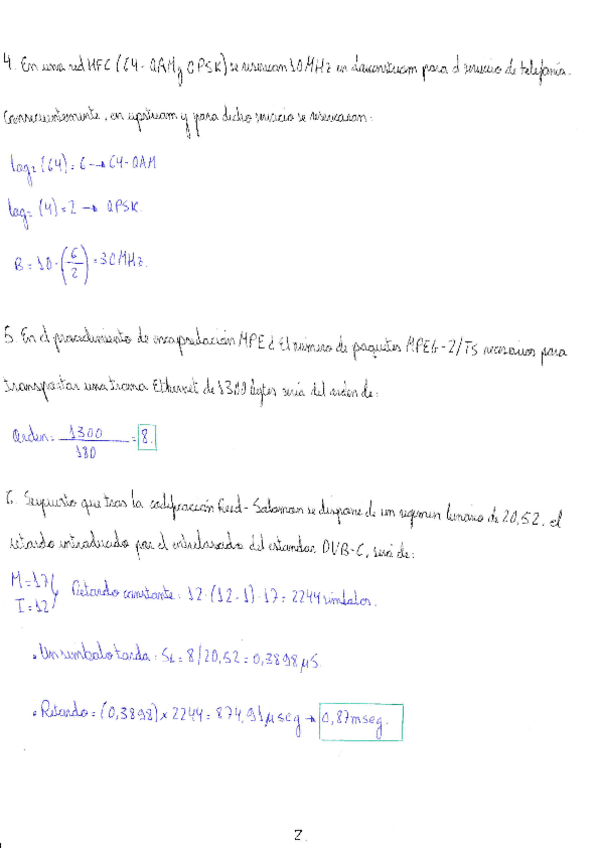 4. En una red HFC (64-QAM y QPSK) se reservan 10MHz en downstream para el servicio de telefonía.
Consecuentemente, en upstream y para dicho servicio se reservaran:
log₂ (64) = 6 → 64-QAM
log₂ (4) = 2 → QPSK.
B = 10·(6/2) = 30MHz.
5. En el procedimiento de encapsulación MPE ¿ El número de paquetes MPEG-2/TS necesarios para
transportar una trama Ethernet de 1300 bytes seria del orden de:
Orden = 1300/180 = 8.
6. Supuesto que tras la codificación Reed-Salomon se dispone de un regimen binario de 20,52. el
retardo introducido por el entrelazado del estandar DVB-C, será de:
M=17
I=12
Retardo constante: 12·(12-1)·17 = 2244 simbolos.
• Un simbolo tarda: S₁ = 8/20,52 = 0,3898 µS.
• Retardo = (0,3898) x 2244 = 874,91 µseg → 0,87mseg.
2.